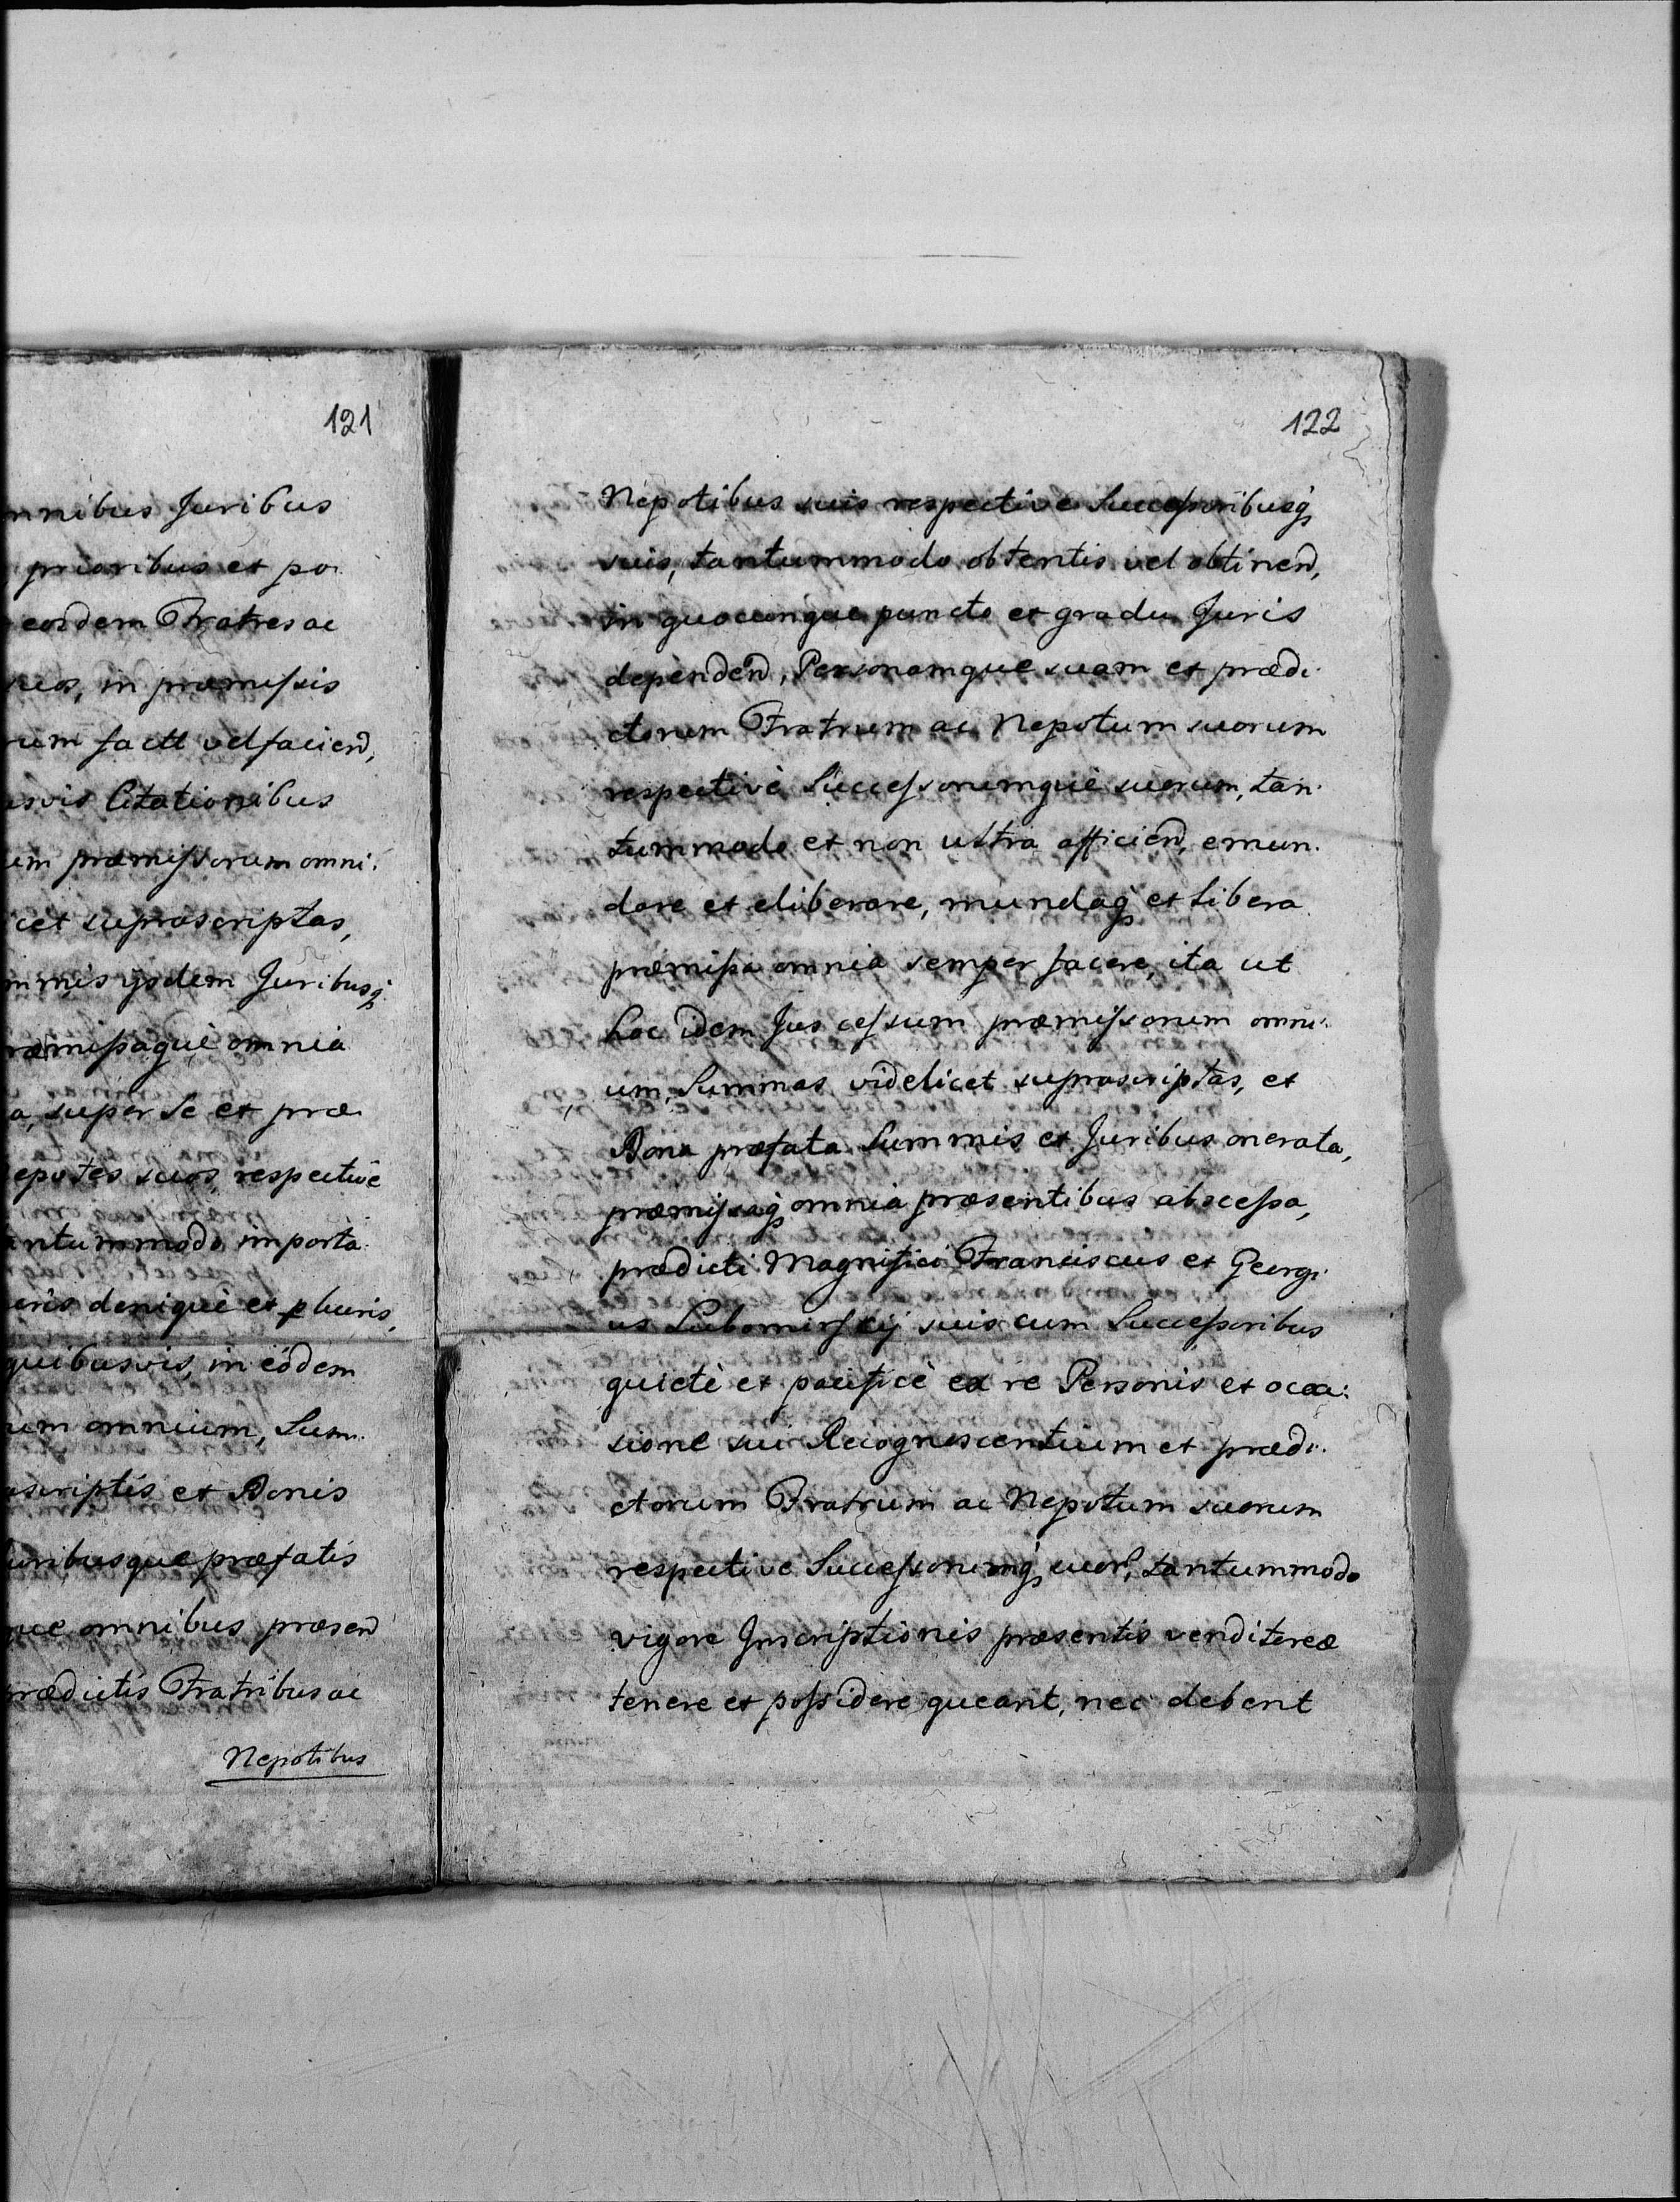 121
mnibus Juribus
prioribus et po
eosdem Fratres ac
suos, in præmissis
rum fact vel faciend,
usvis Citationibus
um præmissorum omni:
cet suprascriptas,
mmis ijsdem Juribusq
ræmissaque omnia
a, super Se et præ
epotes suos, respective
antummodo importa
eris denique et pluris,
quibusvis, in eodem
um omnium, Sum
ascriptis et Bonis
uribusque præfatis
que omnibus præsen
rædictis Fratribus ac
Nepotibus
122
Nepotibus suis respective Successoribusq
suis, tantummodo obtentis vel obtinend,
in quocunque puncto et gradu Juris
dependend, Personamque suam et prædi
ctorum Fratrum ac Nepotum suorum
respective Successorumque suorum, tan
tummodo et non ultra afficiend, emun
dare et eliberare, mundaq et libera
præmissa omnia semper facere, ita ut
hoc idem Jus cessum præmissorum omni
um, Summas videlicet suprascriptas, et
Bona præfata Summis et Juribus onerata,
præmissaq omnia præsentibus abscessa,
prædicti Magnifici Franciscus et Georgi
us Lubomirskij suis cum Successoribus
quietè et pacificè ex re Personis et occa:
sione sui Recognoscentium et prædi
ctorum Fratrum ac Nepotum suorum
respective Successorumq suor, tantummodo
vigore Inscriptionis præsentis venditereæ
tenere et possidere queant, nec debent